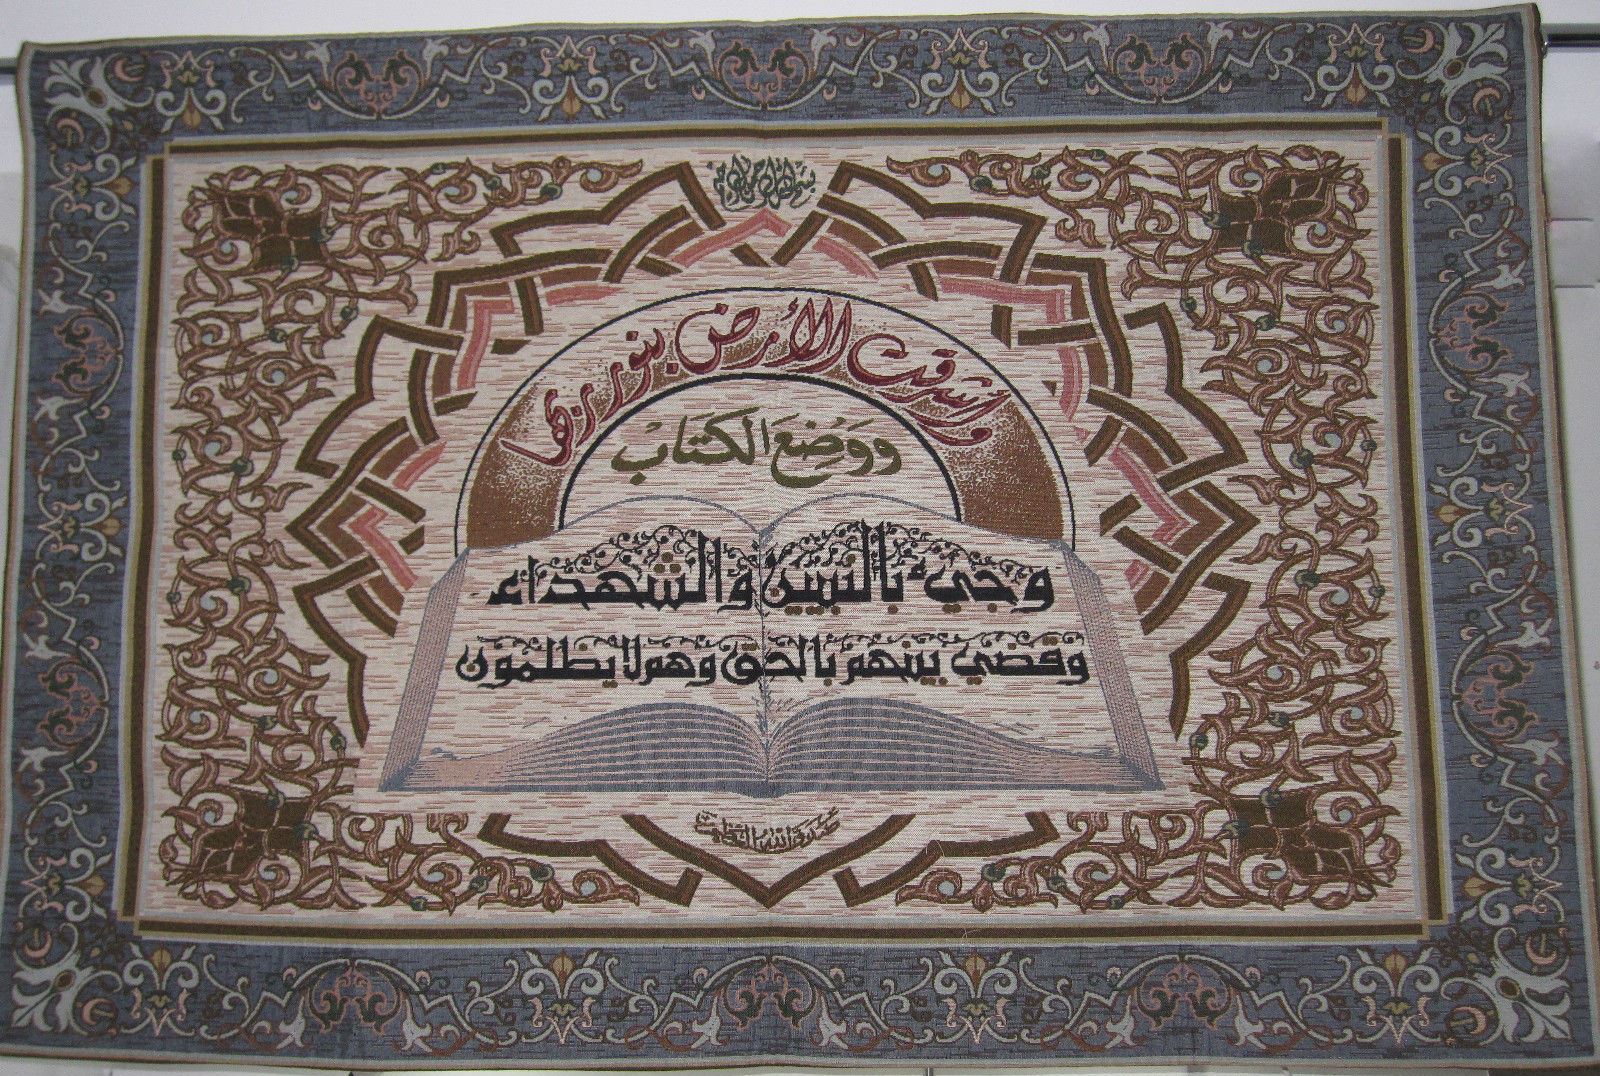 بسم الله الرحمن الرحيم
وأشرقت الأرض بنور ربها
ووضع الكتاب
وجيء بالنبيين والشهداء
وقضي بينهم بالحق وهم لا يظلمون
صدق الله العظيم